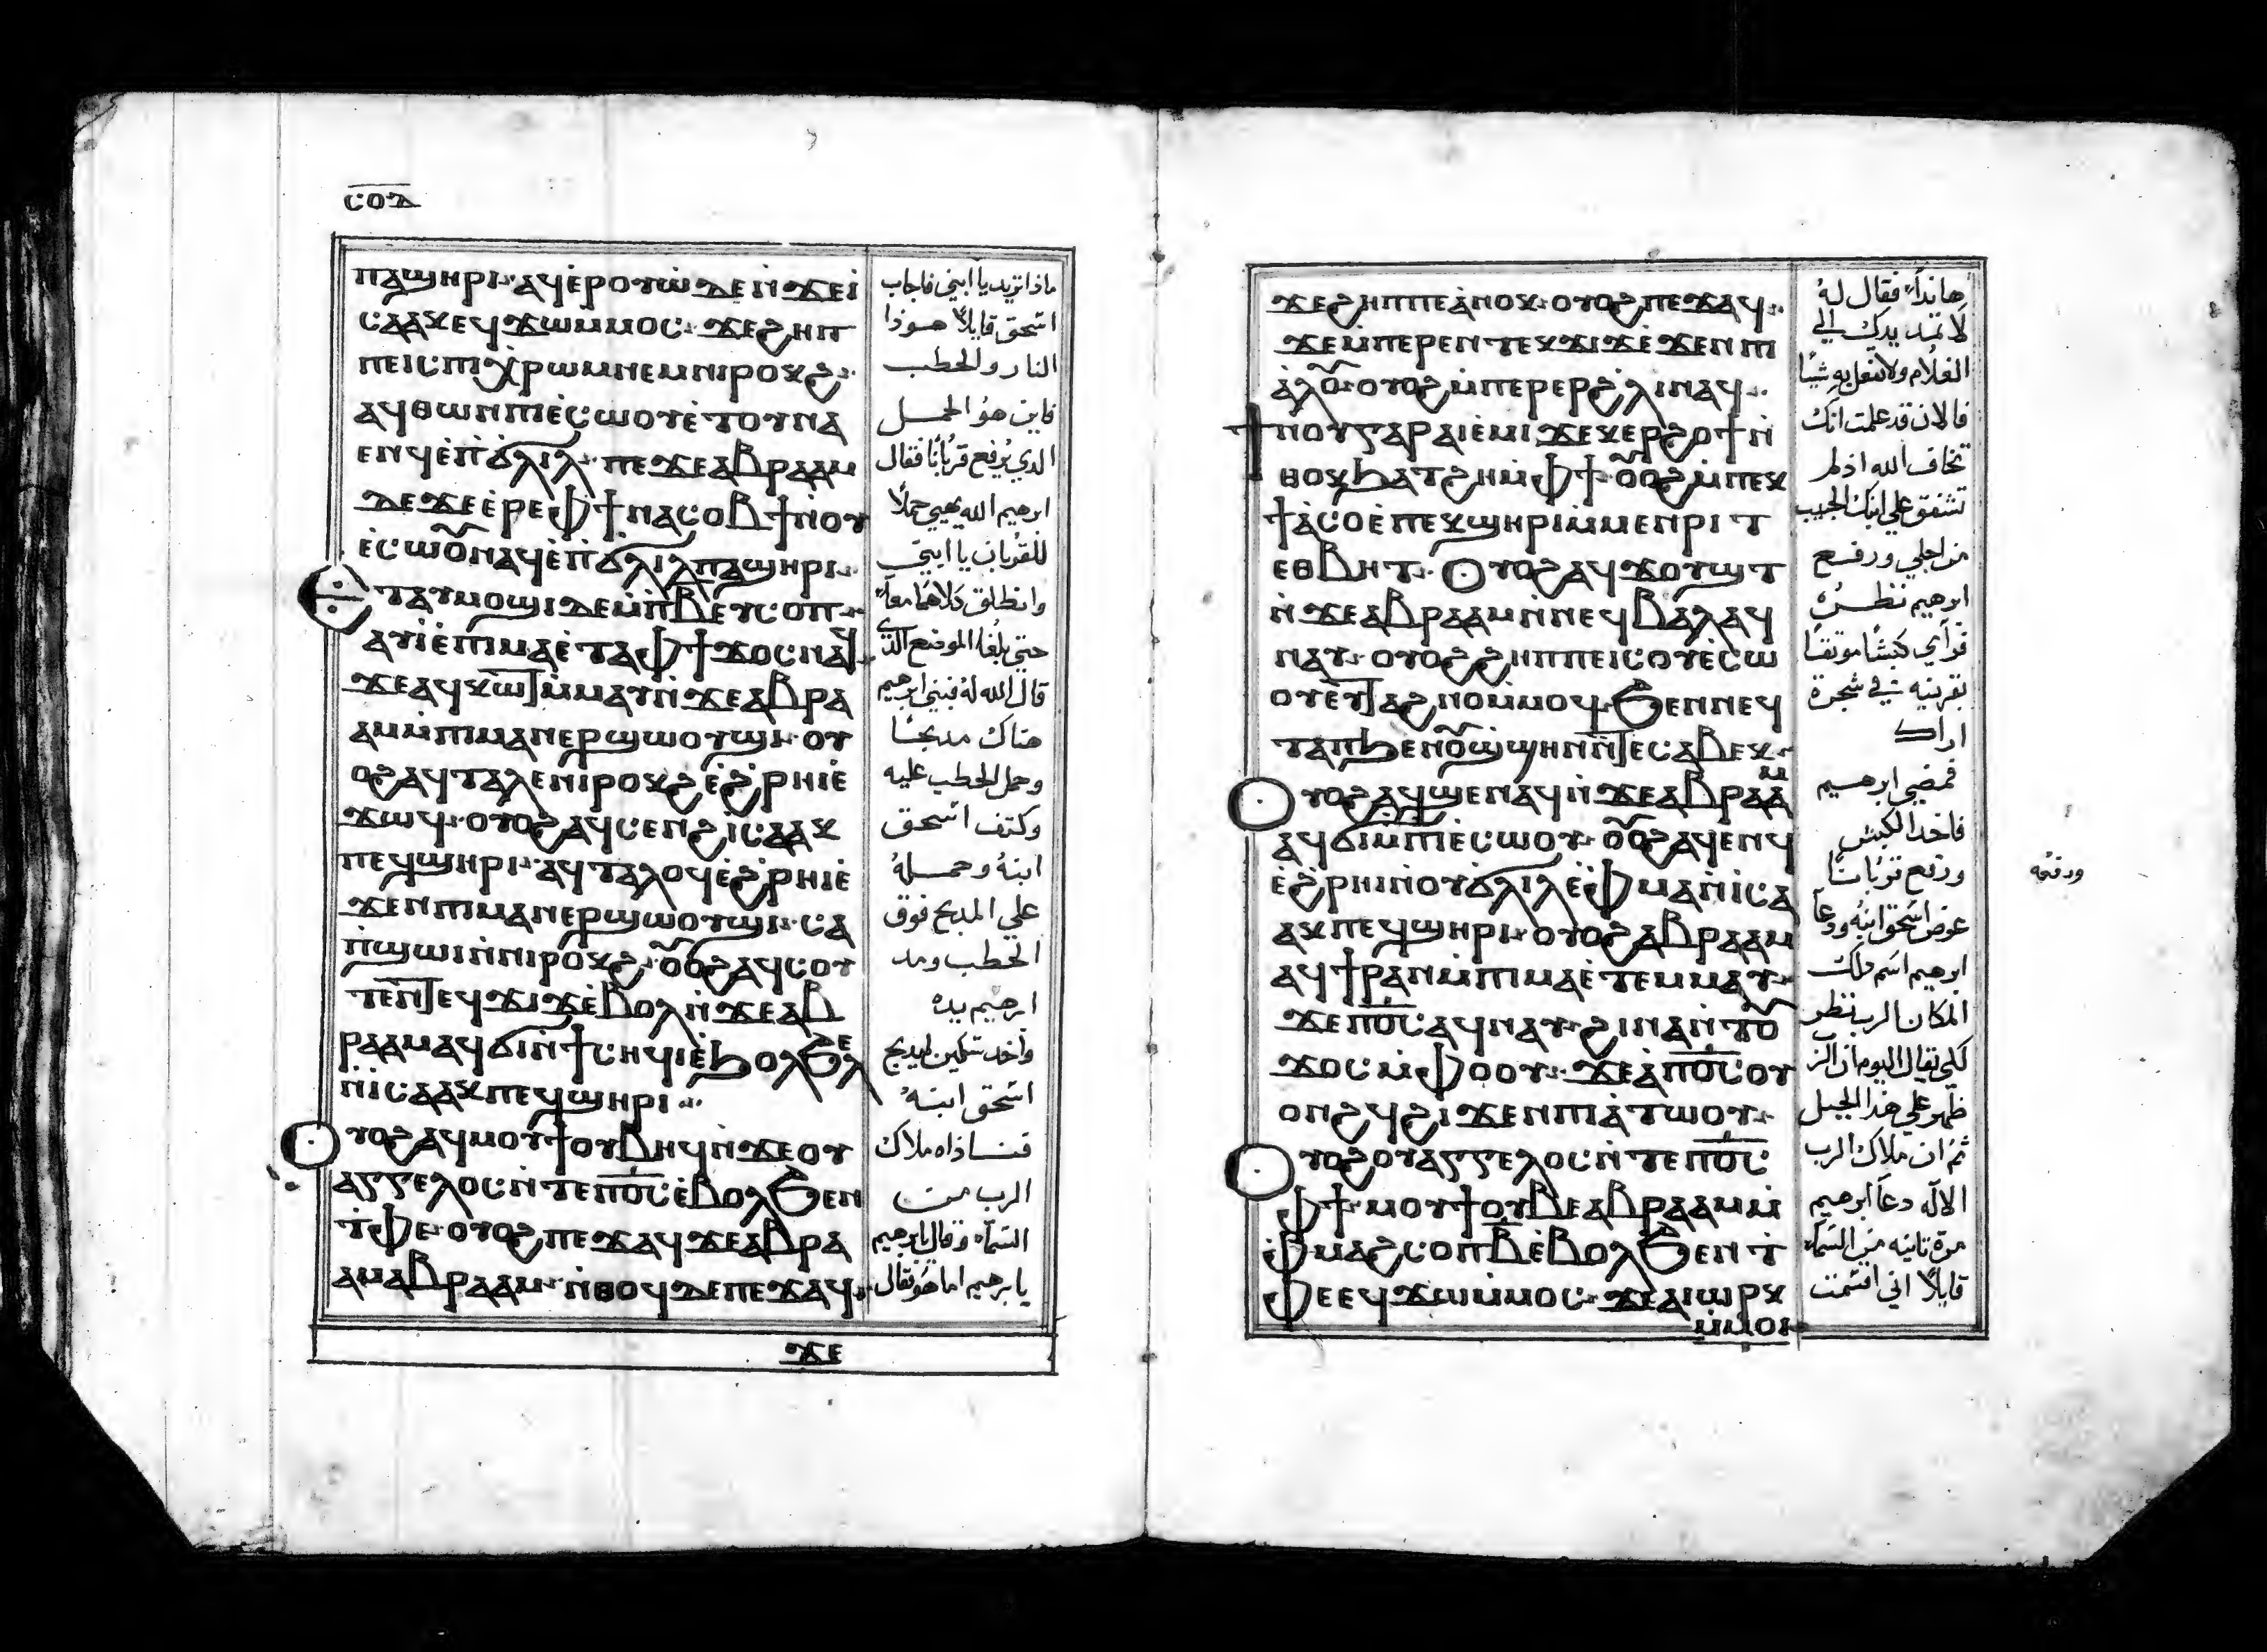 ⲥⲟⲇ
ⲡⲁϣⲏⲣⲓ· ⲁϥⲉ̀ⲣⲟⲩⲱ̀ ⲇⲉ ⲛ̀ϫⲉ ⲓ̀
ⲥⲁⲁⲕ ⲉϥϫⲱ ⲙ̀ⲙⲟⲥ· ϫⲉ ϩⲏⲡ
ⲡⲉ ⲓⲥ ⲡⲓⲭ̀ⲣⲱⲙ ⲛⲉⲙ ⲛⲓⲣⲟⲕϩ·
ⲁϥⲑⲱⲛ ⲡⲓⲉ̀ⲥⲱⲟⲩ ⲉ̀ⲧⲟⲩⲛⲁ
ⲉⲛϥ ⲉ̀ⲡ̀ϭⲗⲓⲗ· ⲡⲉϫⲉ ⲁⲃⲣⲁⲁⲙ
ⲇⲉ ϫⲉ ⲉ̀ⲣⲉ ⲫϯ ⲛⲁⲥⲟⲃϯ ⲛⲟⲩ
ⲉ̀ⲥⲱⲟ̃ ⲛⲁϥ ⲉ̀ⲡ̀ϭⲗⲓⲗ ⲡⲁϣⲏⲣⲓ·
ⲉⲧⲁⲩⲙⲟϣⲓ ⲇⲉ ⲙ̀ⲡ̀ⲃ ⲉⲩⲥⲟⲡ·
ⲁⲩⲓ̀ ⲉ̀ⲡⲓⲙⲁ ⲉ̀ⲧⲁ ⲫϯ ϫⲟⲥ ⲛⲁϥ·
ϫⲉ ⲁϥⲕⲱⲧ ⲙ̀ⲙⲁⲩ ⲛ̀ϫⲉ ⲁⲃⲣⲁ
ⲁⲙ ⲙ̀ⲡⲓⲙⲁⲛⲉⲣϣⲱⲟⲩϣⲓ· ⲟⲩ
ⲟϩ ⲁϥⲧⲁⲗⲉ ⲛⲓⲣⲟⲕϩ ⲉ̀ϩ̀ⲣⲏⲓ ⲉ̀
ϫⲱϥ· ⲟⲩⲟϩ ⲁϥⲥⲉⲛϩ ⲓ̀ⲥⲁⲁⲕ
ⲡⲉϥϣⲏⲣⲓ· ⲁϥⲧⲁⲗⲟϥ ⲉ̀ϩ̀ⲣⲏⲓ ⲉ̀
ϫⲉⲛ ⲡⲓⲙⲁⲛⲉⲣϣⲱⲟⲩϣⲓ· ⲥⲁ
ⲡ̀ϣⲱⲓ ⲛ̀ⲛⲓⲣⲟⲕϩ· ⲟ̃ⲟϩ ⲁϥⲥⲟⲩ
ⲧⲉⲛ ⲧⲉϥϫⲓϫ ⲉ̀ⲃⲟⲗ ⲛ̀ϫⲉ ⲁⲃ
ⲣⲁⲁⲙ ⲁϥϭⲓ ⲛ̀ϯⲥⲏϥⲓ ⲉ̀ϧⲟⲗϧⲉⲗ
ⲛ̀ⲓⲥⲁⲁⲕ ⲡⲉϥϣⲏⲣⲓ·
ⲟⲩⲟϩ ⲁϥⲙⲟⲩϯ ⲟⲩⲃⲏϥ ⲛ̀ϫⲉ ⲟⲩ
ⲁⲅⲅⲉⲗⲟⲥ ⲛ̀ⲧⲉ ⲡⲟ̅ⲥ̅ ⲉ̀ⲃⲟⲗϧⲉⲛ
ⲧ̀ⲫⲉ· ⲟⲩⲟϩ ⲡⲉϫⲁϥ ϫⲉ ⲁⲃⲣⲁ
ⲁⲙ ⲁⲃⲣⲁⲁⲙ· ⲛ̀ⲑⲟϥ ⲇⲉ ⲡⲉϫⲁϥ·
ϫⲉ
ماذا تريد يا ابني فاجاب
اسحق قايلاً هوذا
النار والحطب
فاين هو الحمل
الذي يُرفع قرباناً فقال
ابرهيم الله يهيي حملاً
للقربان يا ابني
وانطلق كلاهما معاً
حتي بلغا الموضع الذي
قال الله له فبني ابرهيم
هناك مدبحًا
وحمل الحطب عليه
وكتف اسحق
ابنهُ وحملهُ
علي المدبح فوق
الحطب ومد
ابرهيم يده
واخد سكين ليدبح
اسحق ابنهُ
فناداه ملاك
الرب من
السماء وقال يابرهيم
يابرهيم اما هو فقال
ϫⲉ ϩⲏⲡⲡⲉ ⲁ̀ⲛⲟⲕ· ⲟⲩⲟϩ ⲡⲉϫⲁϥ·
ϫⲉ ⲙ̀ⲡⲉⲣⲉⲛ ⲧⲉⲕϫⲓϫ ⲉ̀ϫⲉⲛ ⲡⲓ
ⲁ̀ⲗⲟ̃· ⲟⲩⲟϩ ⲙ̀ⲡⲉⲣⲉⲣϩ̀ⲗⲓ ⲛⲁϥ·
ϯⲛⲟⲩ ⲅⲁⲣ ⲁⲓⲉ̀ⲙⲓ ϫⲉ ⲕⲉⲣϩⲟϯ ⲛ̀
ⲑⲟⲕ ϧⲁⲧϩⲏ ⲙ̀ⲫϯ· ⲟ̃ⲟϩ ⲙ̀ⲡⲉⲕ
ϯⲁ̀ⲥⲟ ⲉ̀ⲡⲉⲕϣⲏⲣⲓ ⲙ̀ⲙⲉⲛⲣⲓⲧ
ⲉⲑⲃⲏⲧ· ⲟⲩⲟϩ ⲁϥϫⲟⲩϣⲧ
ⲛ̀ϫⲉ ⲁⲃⲣⲁⲁⲙ ⲛ̀ⲛⲉϥⲃⲁⲗ ⲁϥ
ⲛⲁⲩ· ⲟⲩⲟϩ ϩⲏⲡⲡⲉ ⲓⲥ ⲟⲩⲉ̀ⲥⲱ
ⲟⲩ ⲉⲩⲧⲁϩⲛⲟ ⲙ̀ⲙⲟϥ· ϧⲉⲛ ⲛⲉϥ
ⲧⲁⲡ ϧⲉⲛ ⲟ̃ϣ̀ϣⲏⲛ ⲛ̀ⲧⲉ ⲥⲁⲃⲉⲕ·
ⲟⲩⲟϩ ⲁϥϣⲉⲛⲁϥ ⲛ̀ϫⲉ ⲁⲃⲣⲁⲁⲙ
ⲁϥϭⲓ ⲙ̀ⲡⲓⲉ̀ⲥⲱⲟⲩ· ⲟ̃ⲟϩ ⲁϥⲉⲛϥ
ⲉ̀ϩ̀ⲣⲏⲓ ⲛ̀ⲟⲩϭⲗⲓⲗ ⲉ̀ⲫⲙⲁ ⲛ̀ⲓⲥⲁ
ⲁⲕ ⲡⲉϥϣⲏⲣⲓ· ⲟⲩⲟϩ ⲁⲃⲣⲁⲁⲙ
ⲁϥϯⲣⲁⲛ ⲙ̀ⲡⲓⲙⲁ ⲉ̀ⲧⲉⲙⲙⲁⲩ·
ϫⲉ ⲡⲟ̅ⲥ̅ ⲁϥⲛⲁⲩ· ϩⲓⲛⲁ ⲛ̀ⲧⲟ̃
ϫⲟⲥ ⲙ̀ⲫⲟⲟⲩ· ϫⲉ ⲁ̀ ⲡⲟ̅ⲥ̅ ⲟⲩ
ⲟⲛϩϥ ϩⲓϫⲉⲛ ⲡⲓⲁ̀ⲧⲱⲟⲩ·
ⲟⲩⲟϩ ⲟⲩⲁⲅⲅⲉⲗⲟⲥ ⲛ̀ⲧⲉ ⲡⲟ̅ⲥ̅
ⲫϯ· ⲙⲟⲩϯ ⲟⲩⲃⲉ ⲁⲃⲣⲁⲁⲙ ⲙ̀
ⲫⲙⲁϩⲥⲟⲡ ⲃ̅ ⲉ̀ⲃⲟⲗϧⲉⲛ ⲧ̀
ⲫⲉ ⲉϥϫⲱ ⲙ̀ⲙⲟⲥ· ϫⲉ ⲁⲓⲱⲣⲕ
ⲙ̀ⲙⲟⲓ
هانذا فقال لهُ
لا تمد يدك الي
الغلام ولا تفعل به شيًا
فالان قد علمت انك
تخاف الله اذ لم
تشفق علي ابنك الحبيب
من اجلي ورفع
ابرهيم نظره
فرأي كبشًا موثقًا
بقرنيه في شجرة
اراك
فمضي ابرهيم
فاخد الكبش
ورفع قربانًا
عوض اسحق ابنه ودعا
ابرهيم اسم ذلك
المكان الرب نظر
لكي يقال اليوم ان الرب
ظهر علي هذا الجبل
ثم ان ملاك الرب
الاله دعا ابرهيم
مرة تانيه من السماء
قايلاً اني اقسمت